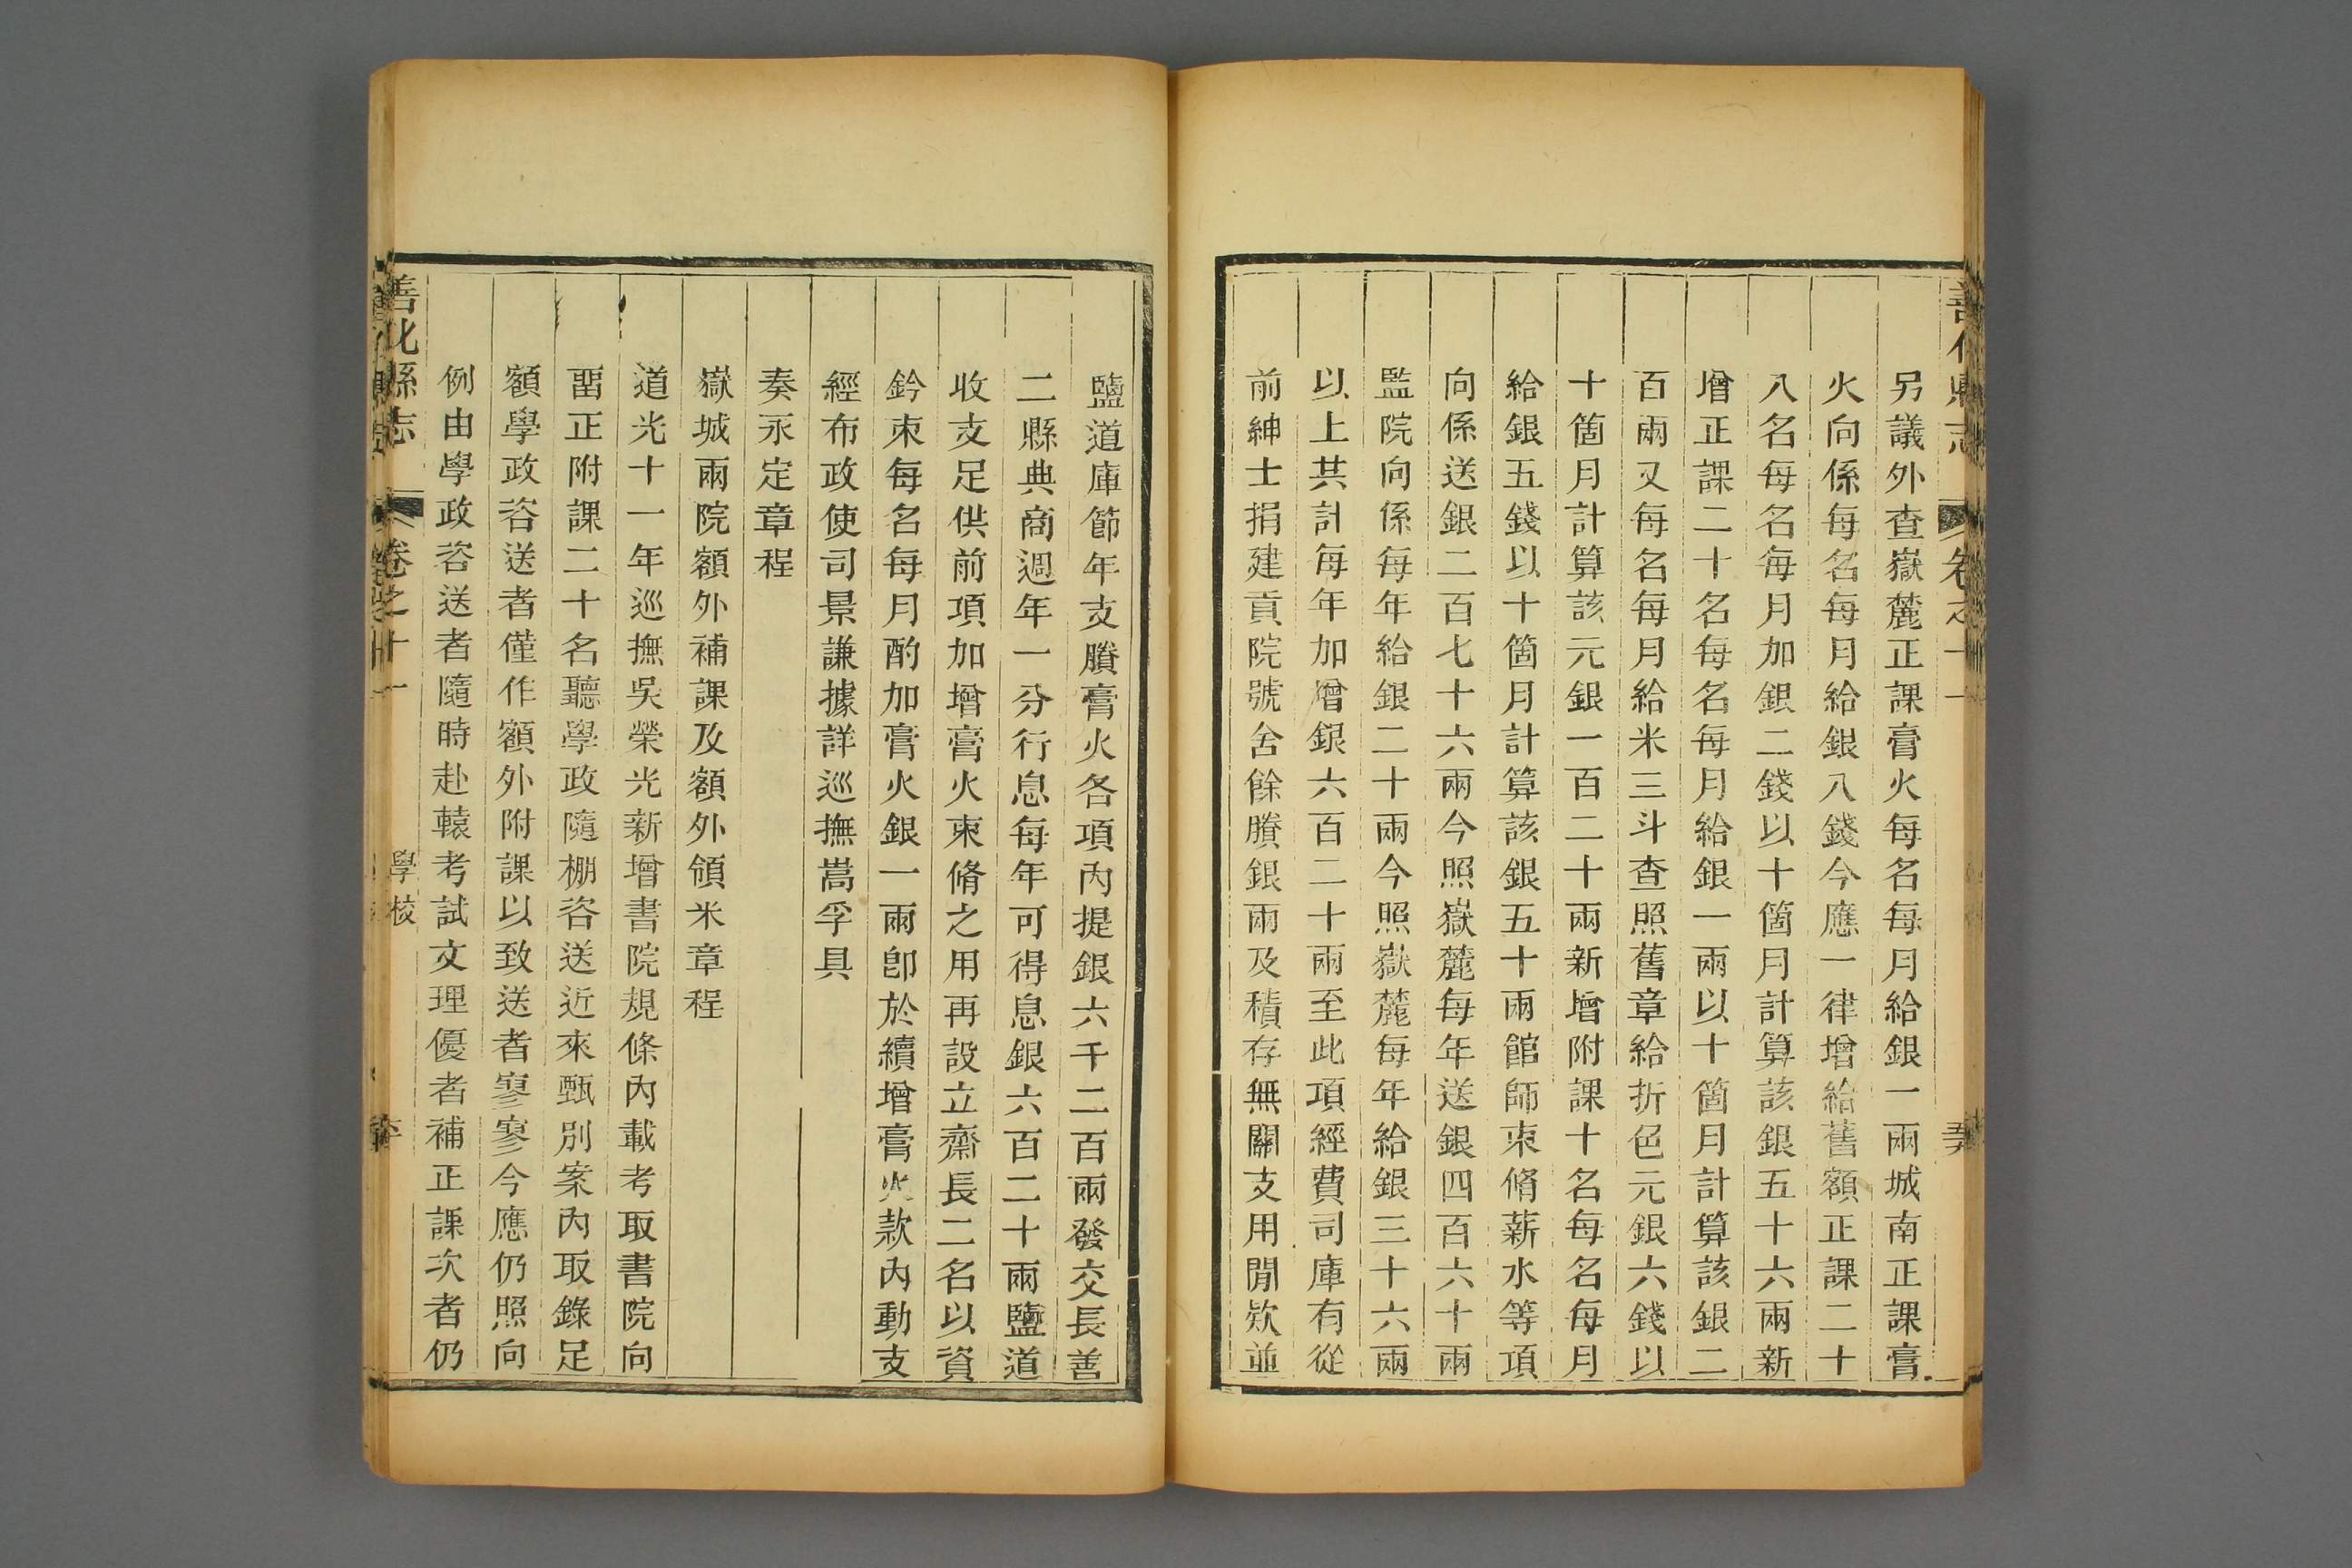 另議外查嶽麓正課膏火每名每月給銀一兩城南正課膏
火向係每名每月給銀八錢今應一律增給舊額正課二十
八名每名每月加銀二錢以十箇月計算該銀五十六兩新
增正課二十名每名每月給銀一兩以十箇月計算該銀二
百兩又每名每月給米三斗查照舊章給折色元銀六錢以
十箇月計算該元銀一百二十兩新增附課十名每名每月
給銀五錢以十箇月計算該銀五十兩館師束脩薪水等項
向係送銀二百七十六兩今照嶽麓每年送銀四百六十兩
監院向係每年給銀二十兩今照嶽麓每年給銀三十六兩
以上共計每年加增銀六百二十兩至此項經費司庫有從
前紳士捐建貢院號舍餘賸銀兩及積存無關支用閒欵並
鹽道庫節年支賸膏火各項內提銀六千二百兩發交長善
二縣典商週年一分行息每年可得息銀六百二十兩鹽道
收支足供前項加增膏火束脩之用再設立齋長二名以資
鈐束每名每月酌加膏火銀一兩卽於續增膏火款內動支
經布政使司景謙據詳巡撫嵩孚具
奏永定章程
嶽城兩院額外補課及額外領米章程
道光十一年巡撫吳榮光新增書院規條內載考取書院向
畱正附課二十名聽學政隨棚咨送近來甄別案內取錄足
額學政咨送者僅作額外附課以致送者寥寥今應仍照向
例由學政咨送者隨時赴轅考試文理優者補正課次者仍
善化縣志 卷之十一 學校